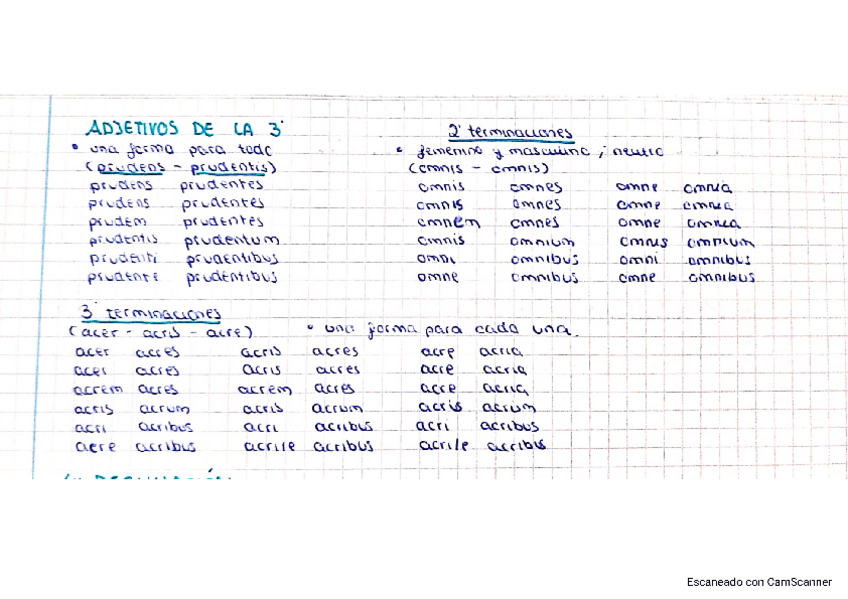 ADJETIVOS DE LA 3ª
• una forma para todo
(prudens - prudentis)
prudens prudentes
prudens prudentes
prudem prudentes
prudentis prudentum
prudenti prudentibus
prudente prudentibus
2ª terminaciones
• femenino y masculino ; neutro
(omnis - omnis)
omnis omnes omne omnia
omnis omnes omne omnia
omnem omnes omne omnia
omnis omnium omnis omnium
omni omnibus omni omnibus
omne omnibus omne omnibus
3ª terminaciones
(acer - acris - acre) • una forma para cada una.
acer acres acris acres acre acria
acer acres acris acres acre acria
acrem acres acrem acres acre acria
acris acrum acris acrum acris acrum
acri acribus acri acribus acri acribus
acre acribus acri/e acribus acri/e acribus
Escaneado con CamScanner